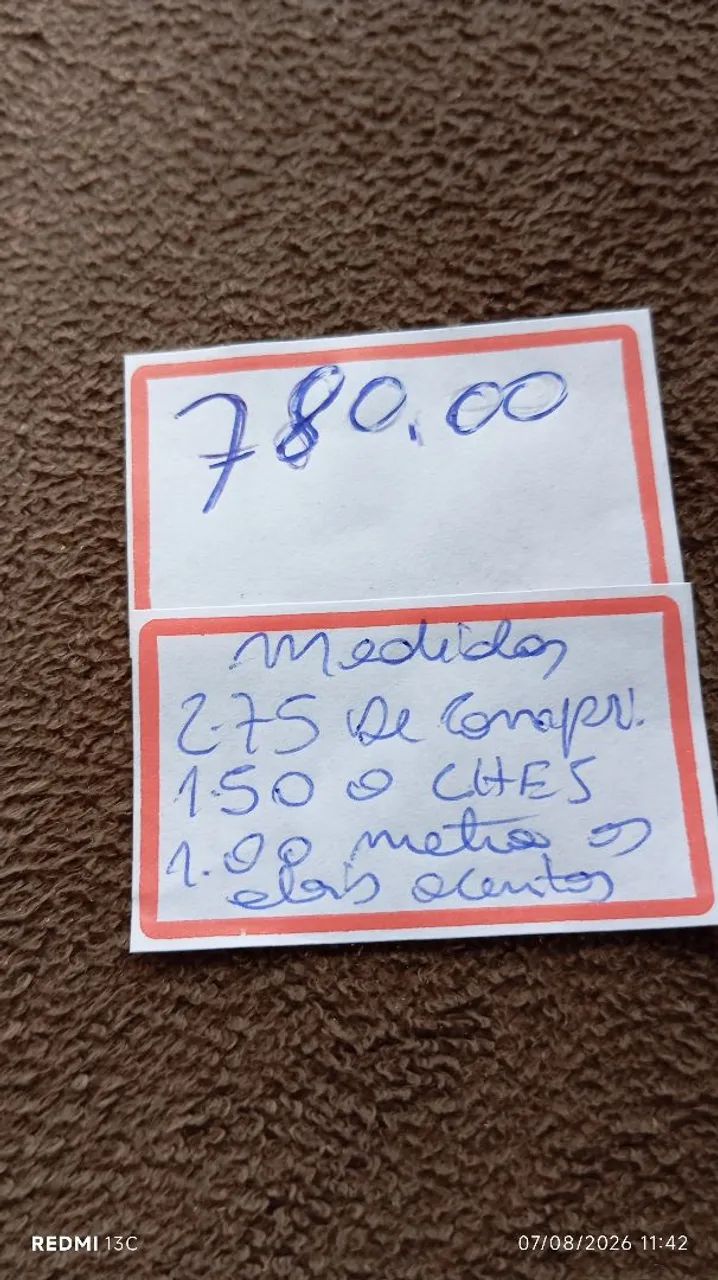 780.00
Medidas
2.75 De Compr.
1.50 o CHES
1.00 metro os
dois acentos
REDMI 13C
07/08/2026 11:42